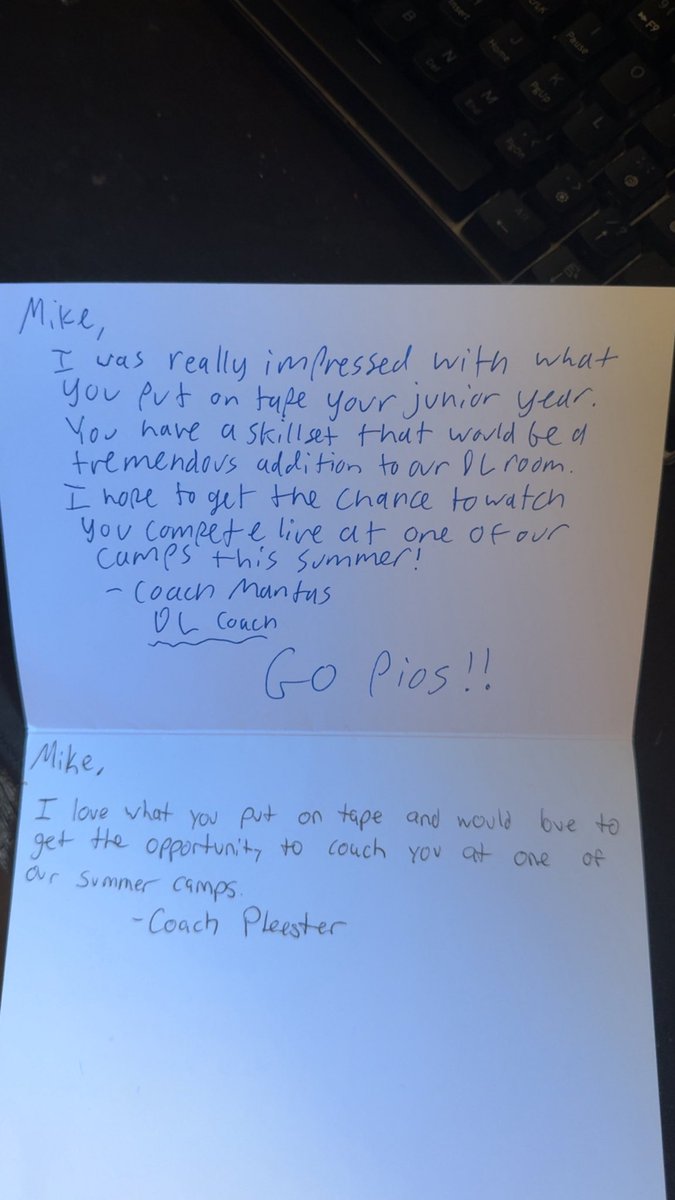 Mike,
I was really impressed with what
you put on tape your junior year.
You have a skillset that would be a
tremendous addition to our DL room.
I hope to get the chance to watch
you compete live at one of our
camps this summer!
- Coach Mantas
DL Coach
Go Pios!!
Mike,
I love what you put on tape and would love to
get the opportunity to coach you at one of
our summer camps.
- Coach Pleester